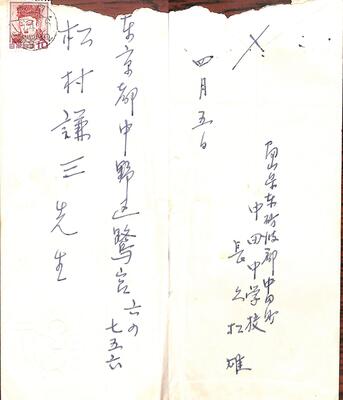 東京都中野区鷺宮六の
七五六
松村謙三先生
四月五日
富山県東砺波郡中田町
中田中学校
長久松雄
10